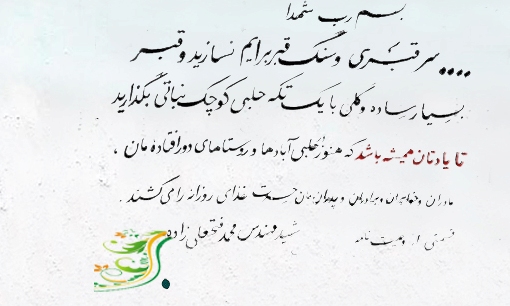 بسم رب شهدا
.... سر قبری و سنگ قبر برایم نسازید و قبر
بسیار ساده و گلی با یک تکه حلبی کوچک نباتی بگذارید
تا یادتان همیشه باشد که هنوز حلبی آبادها و روستاهای دور افتاده مان ،
مادران و خواهران و برادران و پدران مان حسرت غذای روزانه را می کشند .
قسمتی از وصیت نامه شهید مهندس محمد فتحعلی زاده